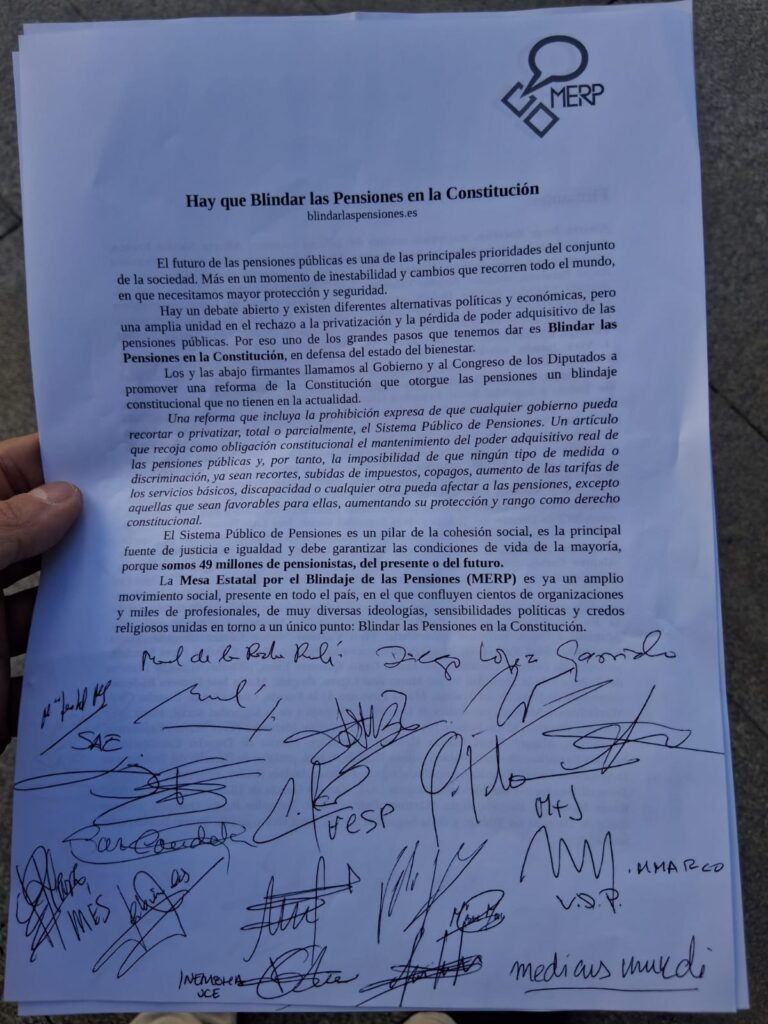 MERP
Hay que Blindar las Pensiones en la Constitución
blindarlaspensiones.es
El futuro de las pensiones públicas es una de las principales prioridades del conjunto
de la sociedad. Más en un momento de inestabilidad y cambios que recorren todo el mundo,
en que necesitamos mayor protección y seguridad.
Hay un debate abierto y existen diferentes alternativas políticas y económicas, pero
una amplia unidad en el rechazo a la privatización y la pérdida de poder adquisitivo de las
pensiones públicas. Por eso uno de los grandes pasos que tenemos dar es Blindar las
Pensiones en la Constitución, en defensa del estado del bienestar.
Los y las abajo firmantes llamamos al Gobierno y al Congreso de los Diputados a
promover una reforma de la Constitución que otorgue las pensiones un blindaje
constitucional que no tienen en la actualidad.
Una reforma que incluya la prohibición expresa de que cualquier gobierno pueda
recortar o privatizar, total o parcialmente, el Sistema Público de Pensiones. Un artículo
que recoja como obligación constitucional el mantenimiento del poder adquisitivo real de
las pensiones públicas y, por tanto, la imposibilidad de que ningún tipo de medida o
discriminación, ya sean recortes, subidas de impuestos, copagos, aumento de las tarifas de
los servicios básicos, discapacidad o cualquier otra pueda afectar a las pensiones, excepto
aquellas que sean favorables para ellas, aumentando su protección y rango como derecho
constitucional.
El Sistema Público de Pensiones es un pilar de la cohesión social, es la principal
fuente de justicia e igualdad y debe garantizar las condiciones de vida de la mayoría,
porque somos 49 millones de pensionistas, del presente o del futuro.
La Mesa Estatal por el Blindaje de las Pensiones (MERP) es ya un amplio
movimiento social, presente en todo el país, en el que confluyen cientos de organizaciones
y miles de profesionales, de muy diversas ideologías, sensibilidades políticas y credos
religiosos unidas en torno a un único punto: Blindar las Pensiones en la Constitución.
de la Diego López Garrido
SAE
MARCO
V.D.P.
MES
UCE
medicus mundi